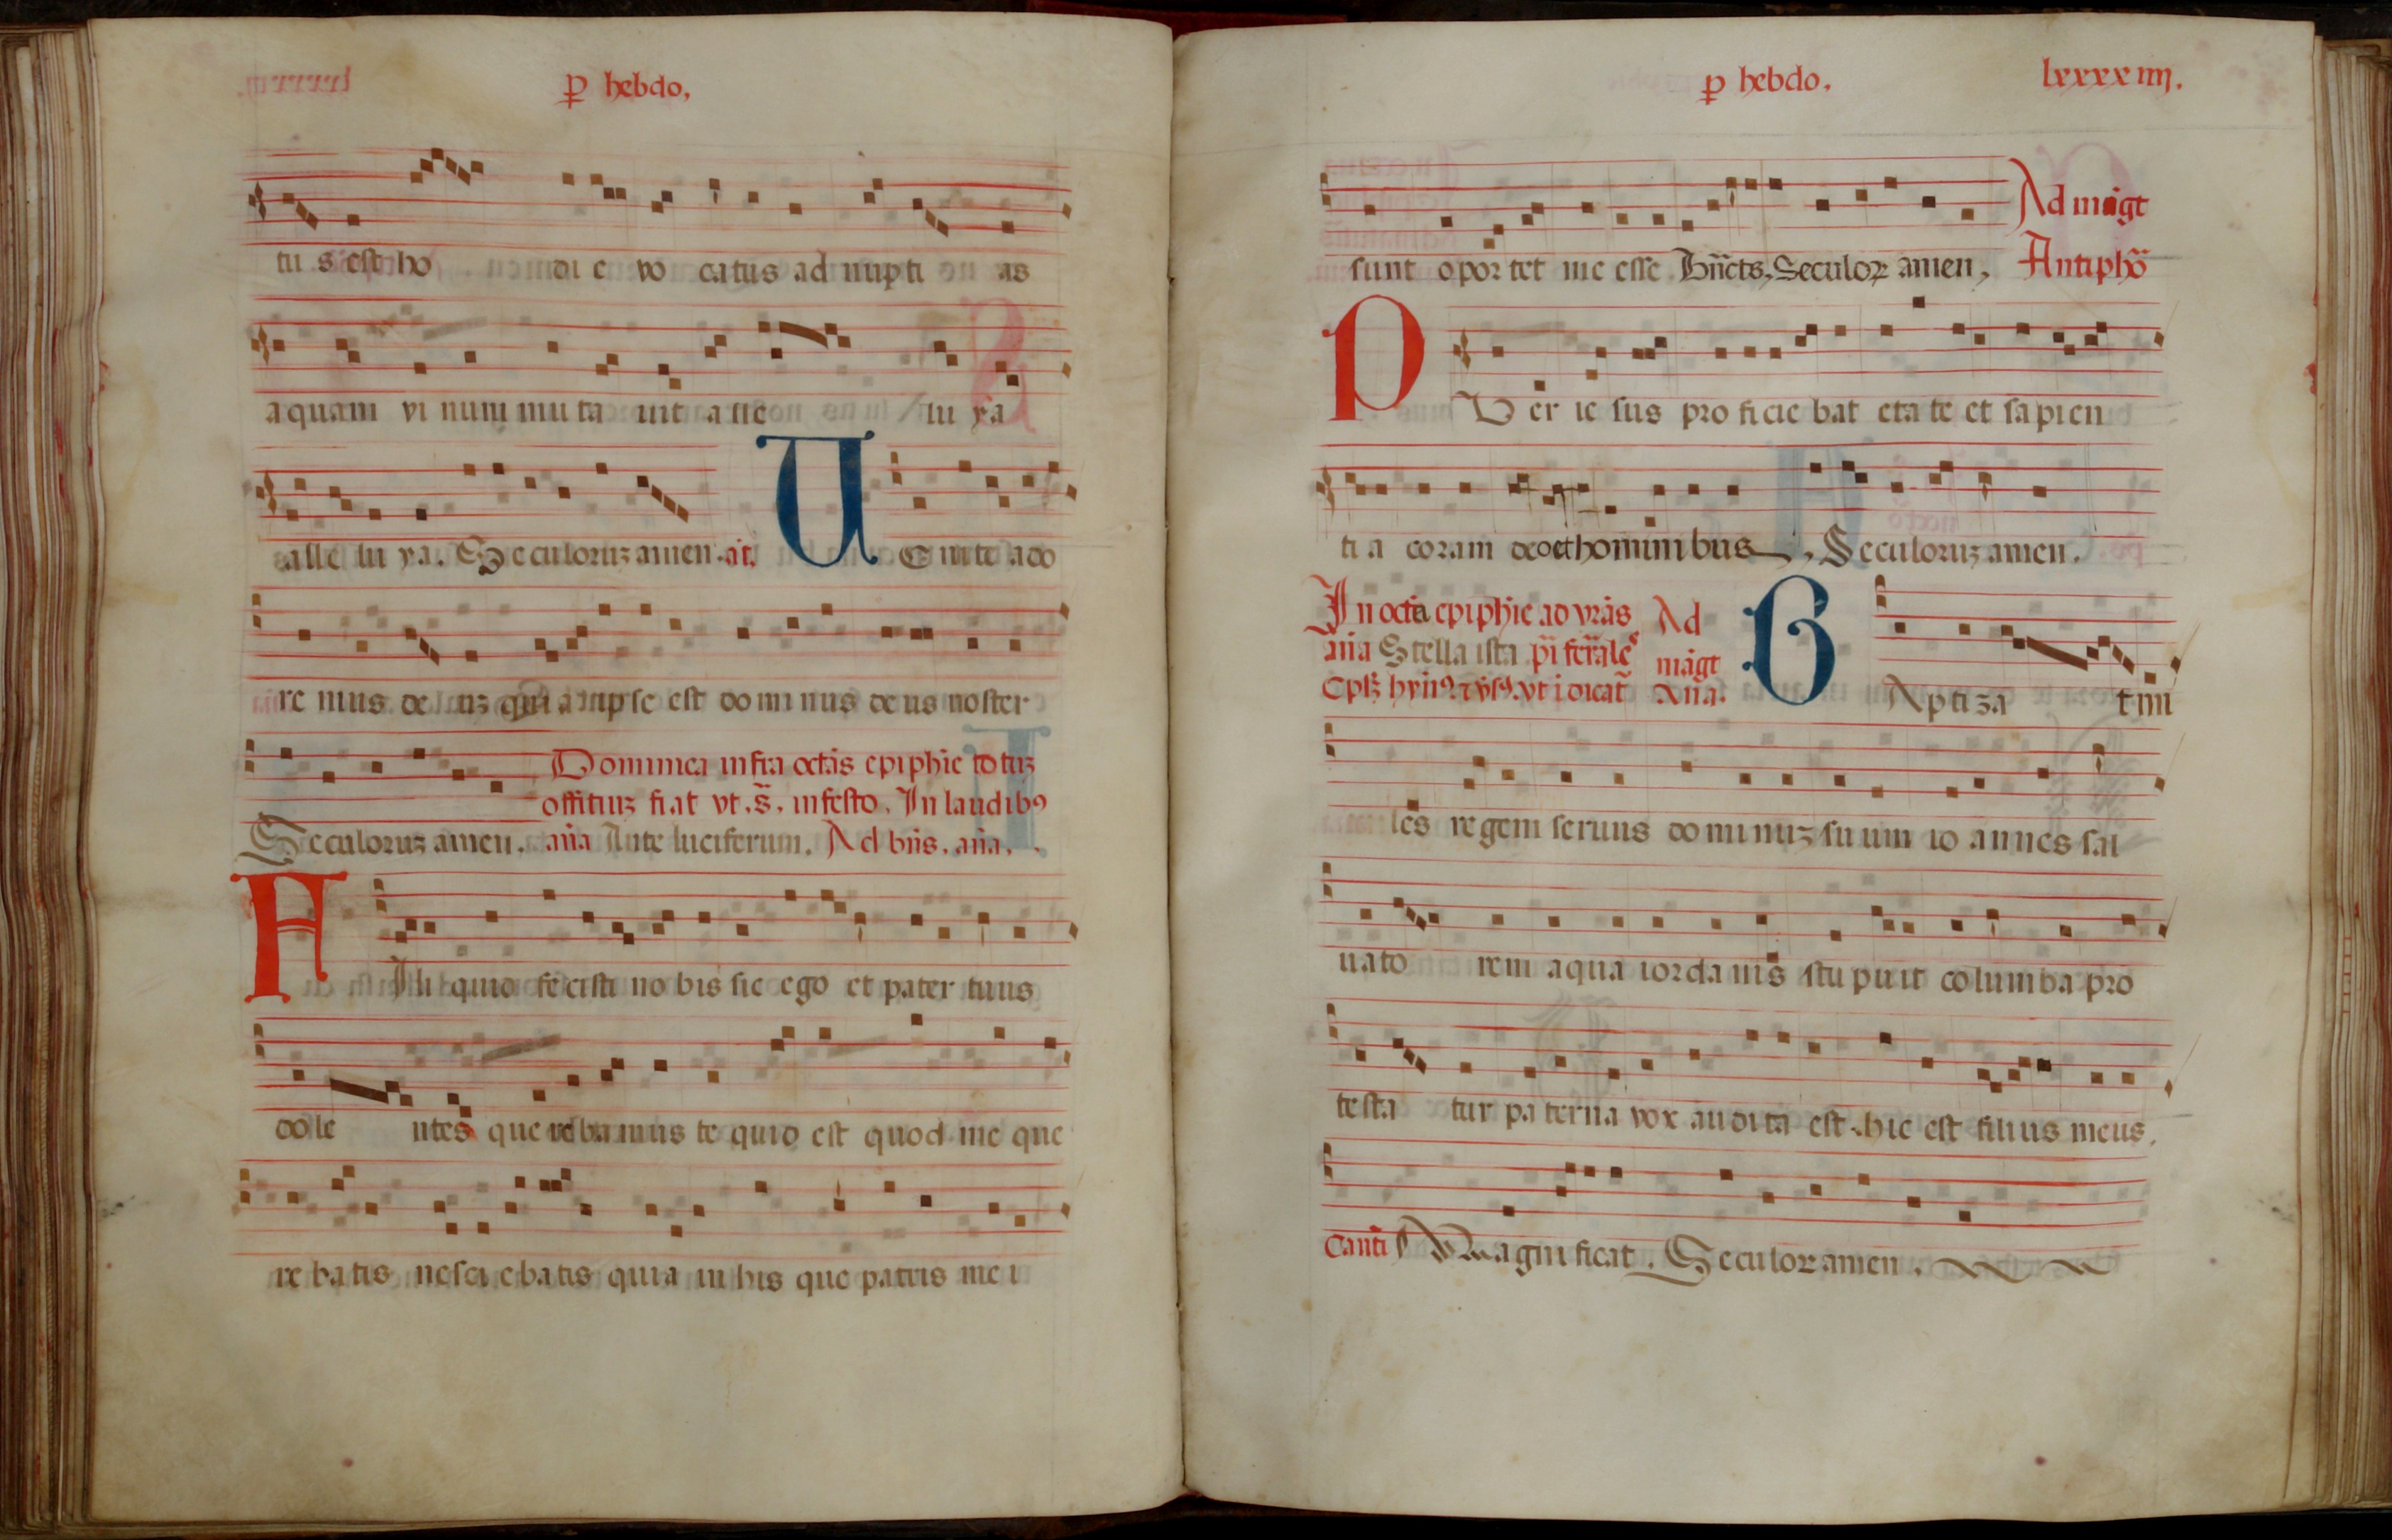 ꝑ hebdo,
tu s est ho di e vo catus ad nupti as
aquam vi num mu ta uit alle lu ya
alle lu ya. Seculoruz amen. at. U E nite ado
re mus de uz qui a ipse est do mi nus de us noster
Dominica infra octãs epiphie totuz
offitiuz fiat vt .s̃. in festo. In laudibꝰ
Seculoruz amen. añа Ante luciferum. Ad bñs. aña.
F Ili quid fecisti no bis sic ego et pater tuus
dole ntes que re ba mus te quid est quod me que
re batis nesci ebatis quia in his que patris me i
ꝑ hebdo. lxxxxiiij.
sunt opor tet me esse Bñcts, Seculoꝝ amen, Ad mãgt Antiphõ
P U er ie sus pro ficie bat eta te et sapien
ti a coram deo et hominibus, Seculoruz amen.
In octã epiphie ad vr̃as Ad
aña Stella ista p̃i fer̃ale mãgt
Cplʒ hymꝰ ⁊ v̉sꝰ. vt i dicat̃ Aña.
B Aptiza t mi
les regem seruus do mi nuz su um io annes sal
uato rem aqua iorda nis stu pu it columba pro
testa tur pa terna vox audi ta est hic est filius meus.
Canti Magni ficat. Seculoꝝ amen.